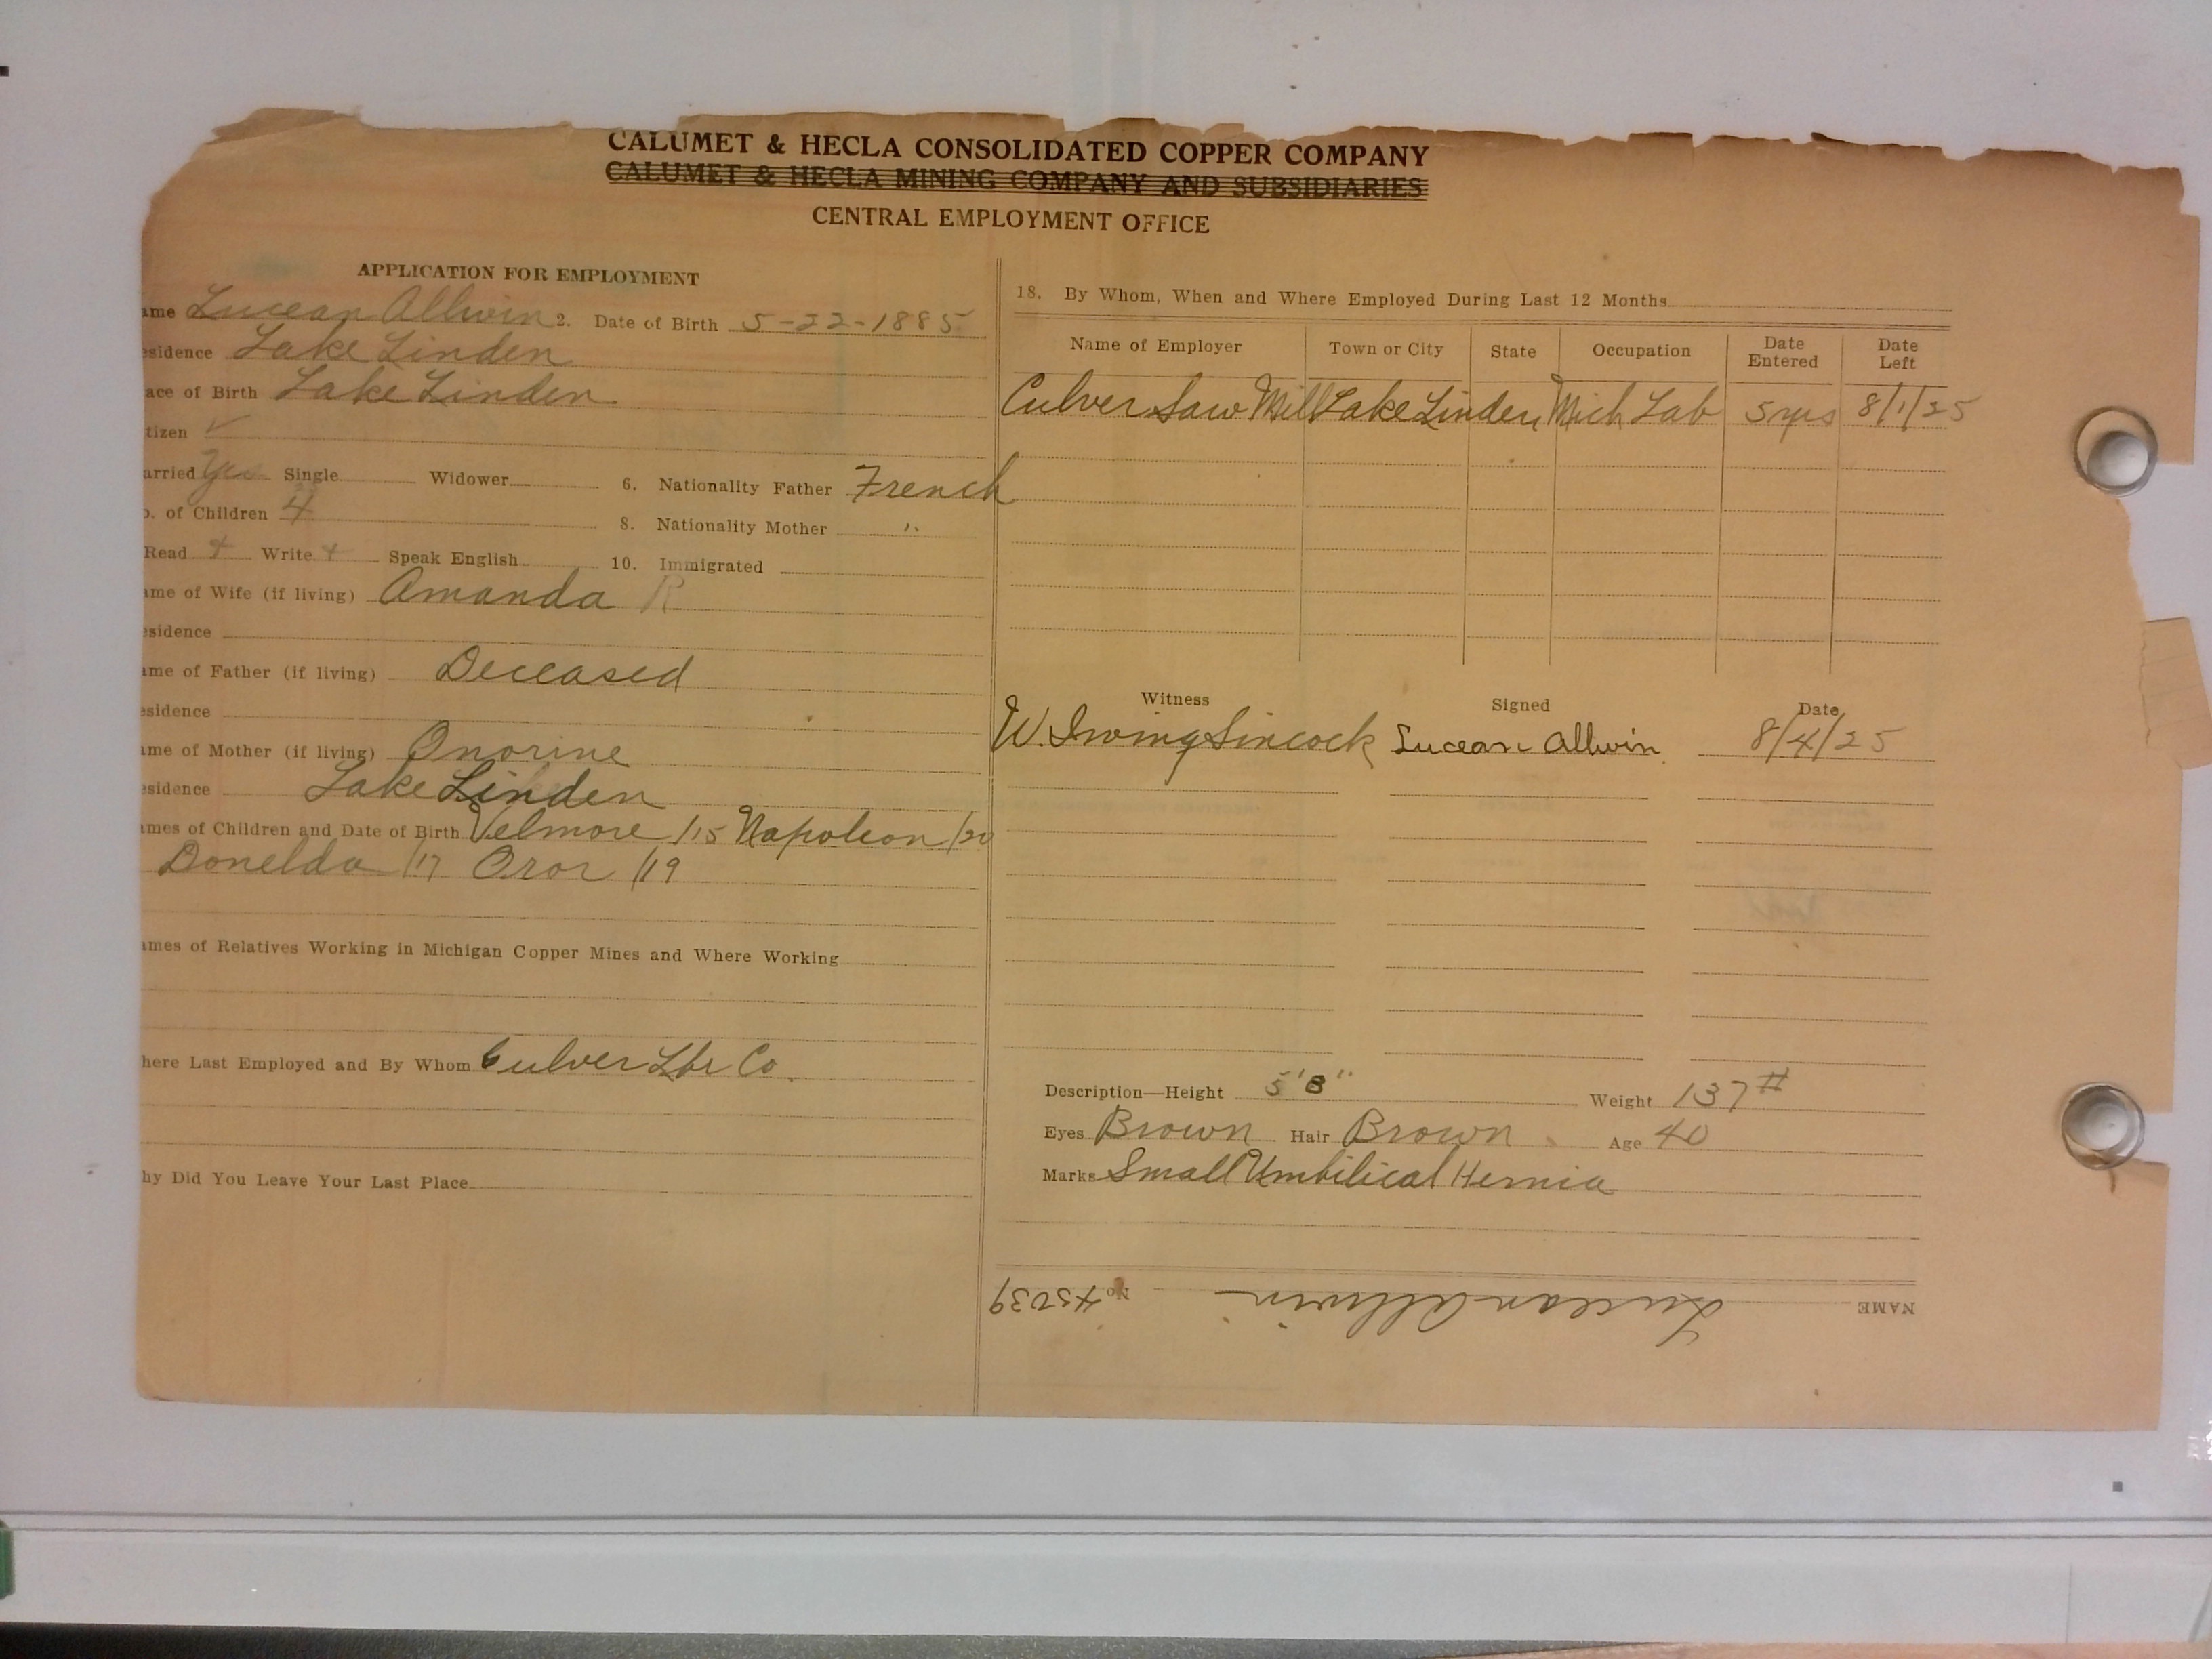 CALUMET & HECLA CONSOLIDATED COPPER COMPANY
CALUMET & HECLA MINING COMPANY AND SUBSIDIARIES
CENTRAL EMPLOYMENT OFFICE
APPLICATION FOR EMPLOYMENT
ame Lucean Allwin 2. Date of Birth 5-22-1885
esidence Lake Linden
ace of Birth Lake Linden
tizen ✓
arried Yes Single Widower 6. Nationality Father French
o. of Children 4 8. Nationality Mother "
Read + Write + Speak English 10. Immigrated
ame of Wife (if living) Amanda R
esidence
ame of Father (if living) Deceased
esidence
ame of Mother (if living) Onorine
esidence Lake Linden
ames of Children and Date of Birth Velmore /15 Napoleon /20
Donelda /17 Oror /19
ames of Relatives Working in Michigan Copper Mines and Where Working
here Last Employed and By Whom Culver Lbr Co.
hy Did You Leave Your Last Place
18. By Whom, When and Where Employed During Last 12 Months
Name of Employer Town or City State Occupation Date Entered Date Left
Culver Saw Mill Lake Linden Mich Lab 5 yrs 8/1/25
Witness Signed Date
W. Irving Sincock Lucean Allwin 8/4/25
Description—Height 5'8" Weight 137#
Eyes Brown Hair Brown Age 40
Marks Small Umbilical Hernia
NAME Lucean Allwin No 45039